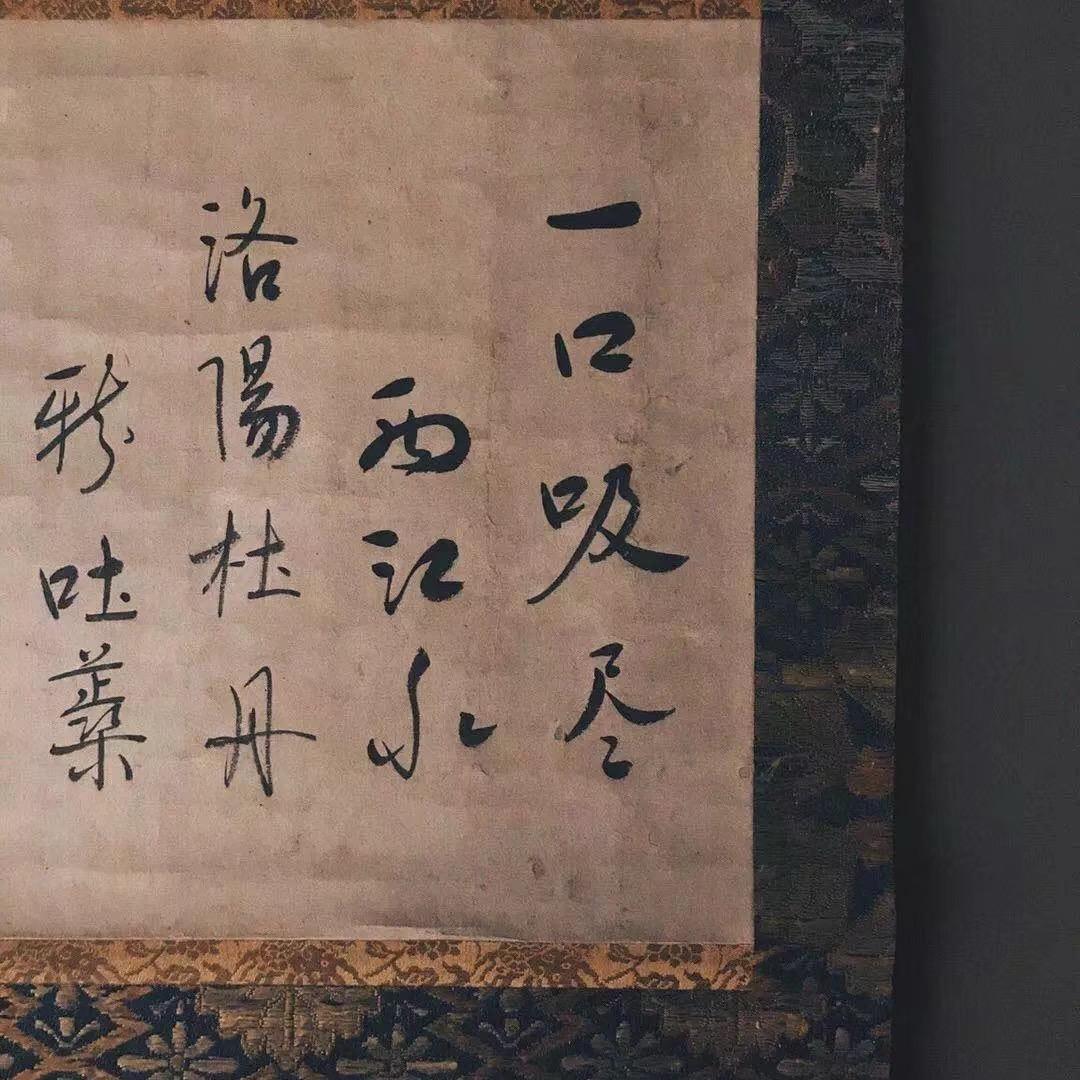 一口吸尽
西江水
洛陽杜丹
新吐蘂